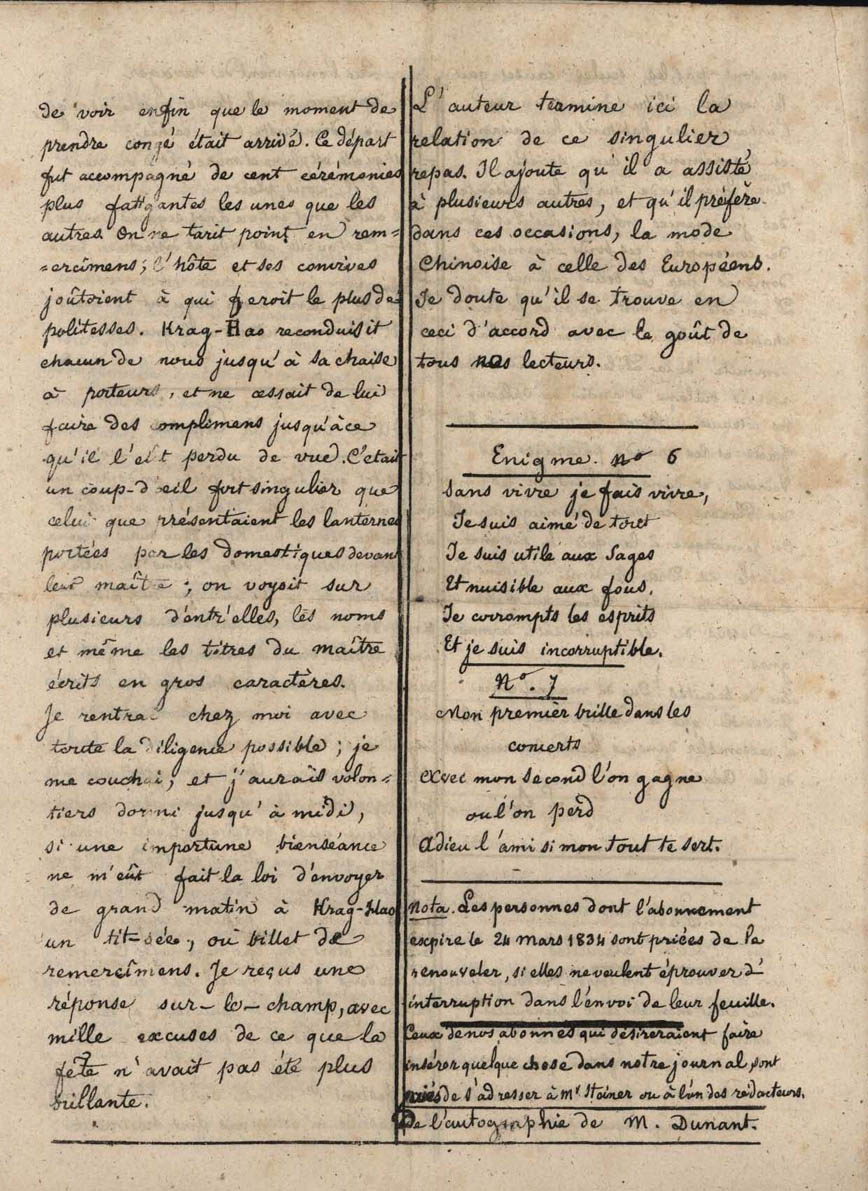 de voir enfin que le moment de
prendre congé était arrivé. Ce départ
fut accompagné de cent cérémonies
plus fatigantes les unes que les
autres. On ne tarit point en rem=
=ercîmens; l'hôte et ses convives
joûtoient à qui feroit le plus de
politesses. Krag-Hao reconduisit
chacun de nous jusqu'à sa chaise
à porteurs, et ne cessait de lui
faire des complimens jusqu'à ce
qu'il l'eût perdu de vue. C'était
un coup-d'œil fort singulier que
celui que présentaient les lanternes
portées par les domestiques devant
leur maître; on voyoit sur
plusieurs d'entr'elles, les noms
et même les titres du maître
écrits en gros caractères.
Je rentrai chez moi avec
toute la diligence possible; je
me couchai, et j'aurais volon=
tiers dormi jusqu'à midi,
si une importune bienséance
ne m'eût fait la loi d'envoyer
de grand matin à Krag-Hao
un tit-sée, ou billet de
remercîmens. Je reçus une
réponse sur-le-champ, avec
mille excuses de ce que la
fête n'avait pas été plus
brillante.
L'auteur termine ici la
relation de ce singulier
repas. Il ajoute qu'il a assisté
à plusieurs autres, et qu'il préfère
dans ces occasions, la mode
Chinoise à celle des Européens.
Je doute qu'il se trouve en
ceci d'accord avec le goût de
tous nos lecteurs.
Enigme. nº 6
Sans vivre je fais vivre,
Je suis aimé de tout
Je suis utile aux Sages
Et nuisible aux fous.
Je corrompts les esprits
Et je suis incorruptible.
Nº. 7
Mon premier brille dans les
concerts
Avec mon second l'on gagne
ou l'on perd
Adieu l'ami si mon tout te sert.
Nota. Les personnes dont l'abonnement
expire le 24 mars 1834 sont priées de le
renouveler, si elles ne veulent éprouver d'
interruption dans l'envoi de leur feuille.
Ceux de nos abonnés qui désireraient faire
insérer quelque chose dans notre journal sont
priés de s'adresser à Mr Steiner ou à l'un des rédacteurs.
De l'autographie de M. Dunant.